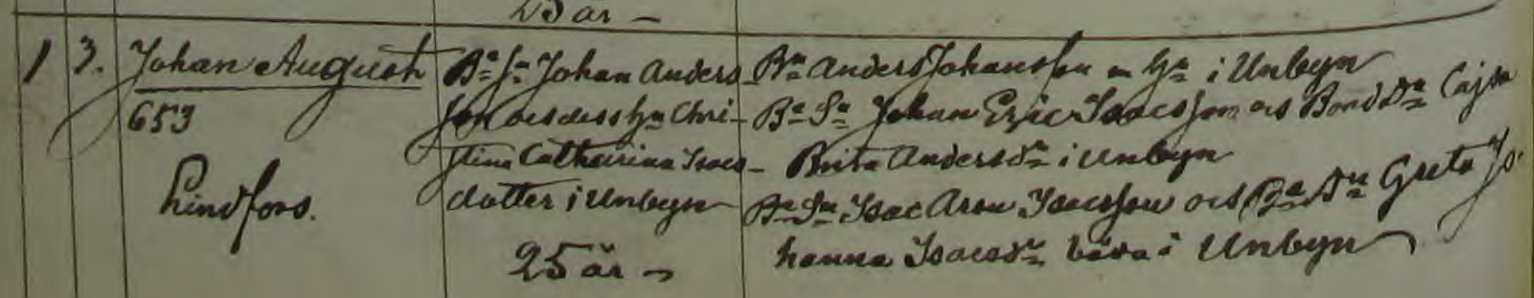 25 år –
1 3. Johan August
653
Lindfors.
Ba Sn Johan Anders-
son och dess Hu Chri-
stina Catharina Isacs-
dotter i Unbyn
25 år –
Bn Anders Johansson m Hu i Unbyn
Ba Sn Johan Eric Isacsson och Bond Dn Cajsa
Brita Andersdr i Unbyn
Ba Sn Isac Aron Isacsson och Ba Dn Greta Jo-
hanna Isacsdr båda i Unbyn